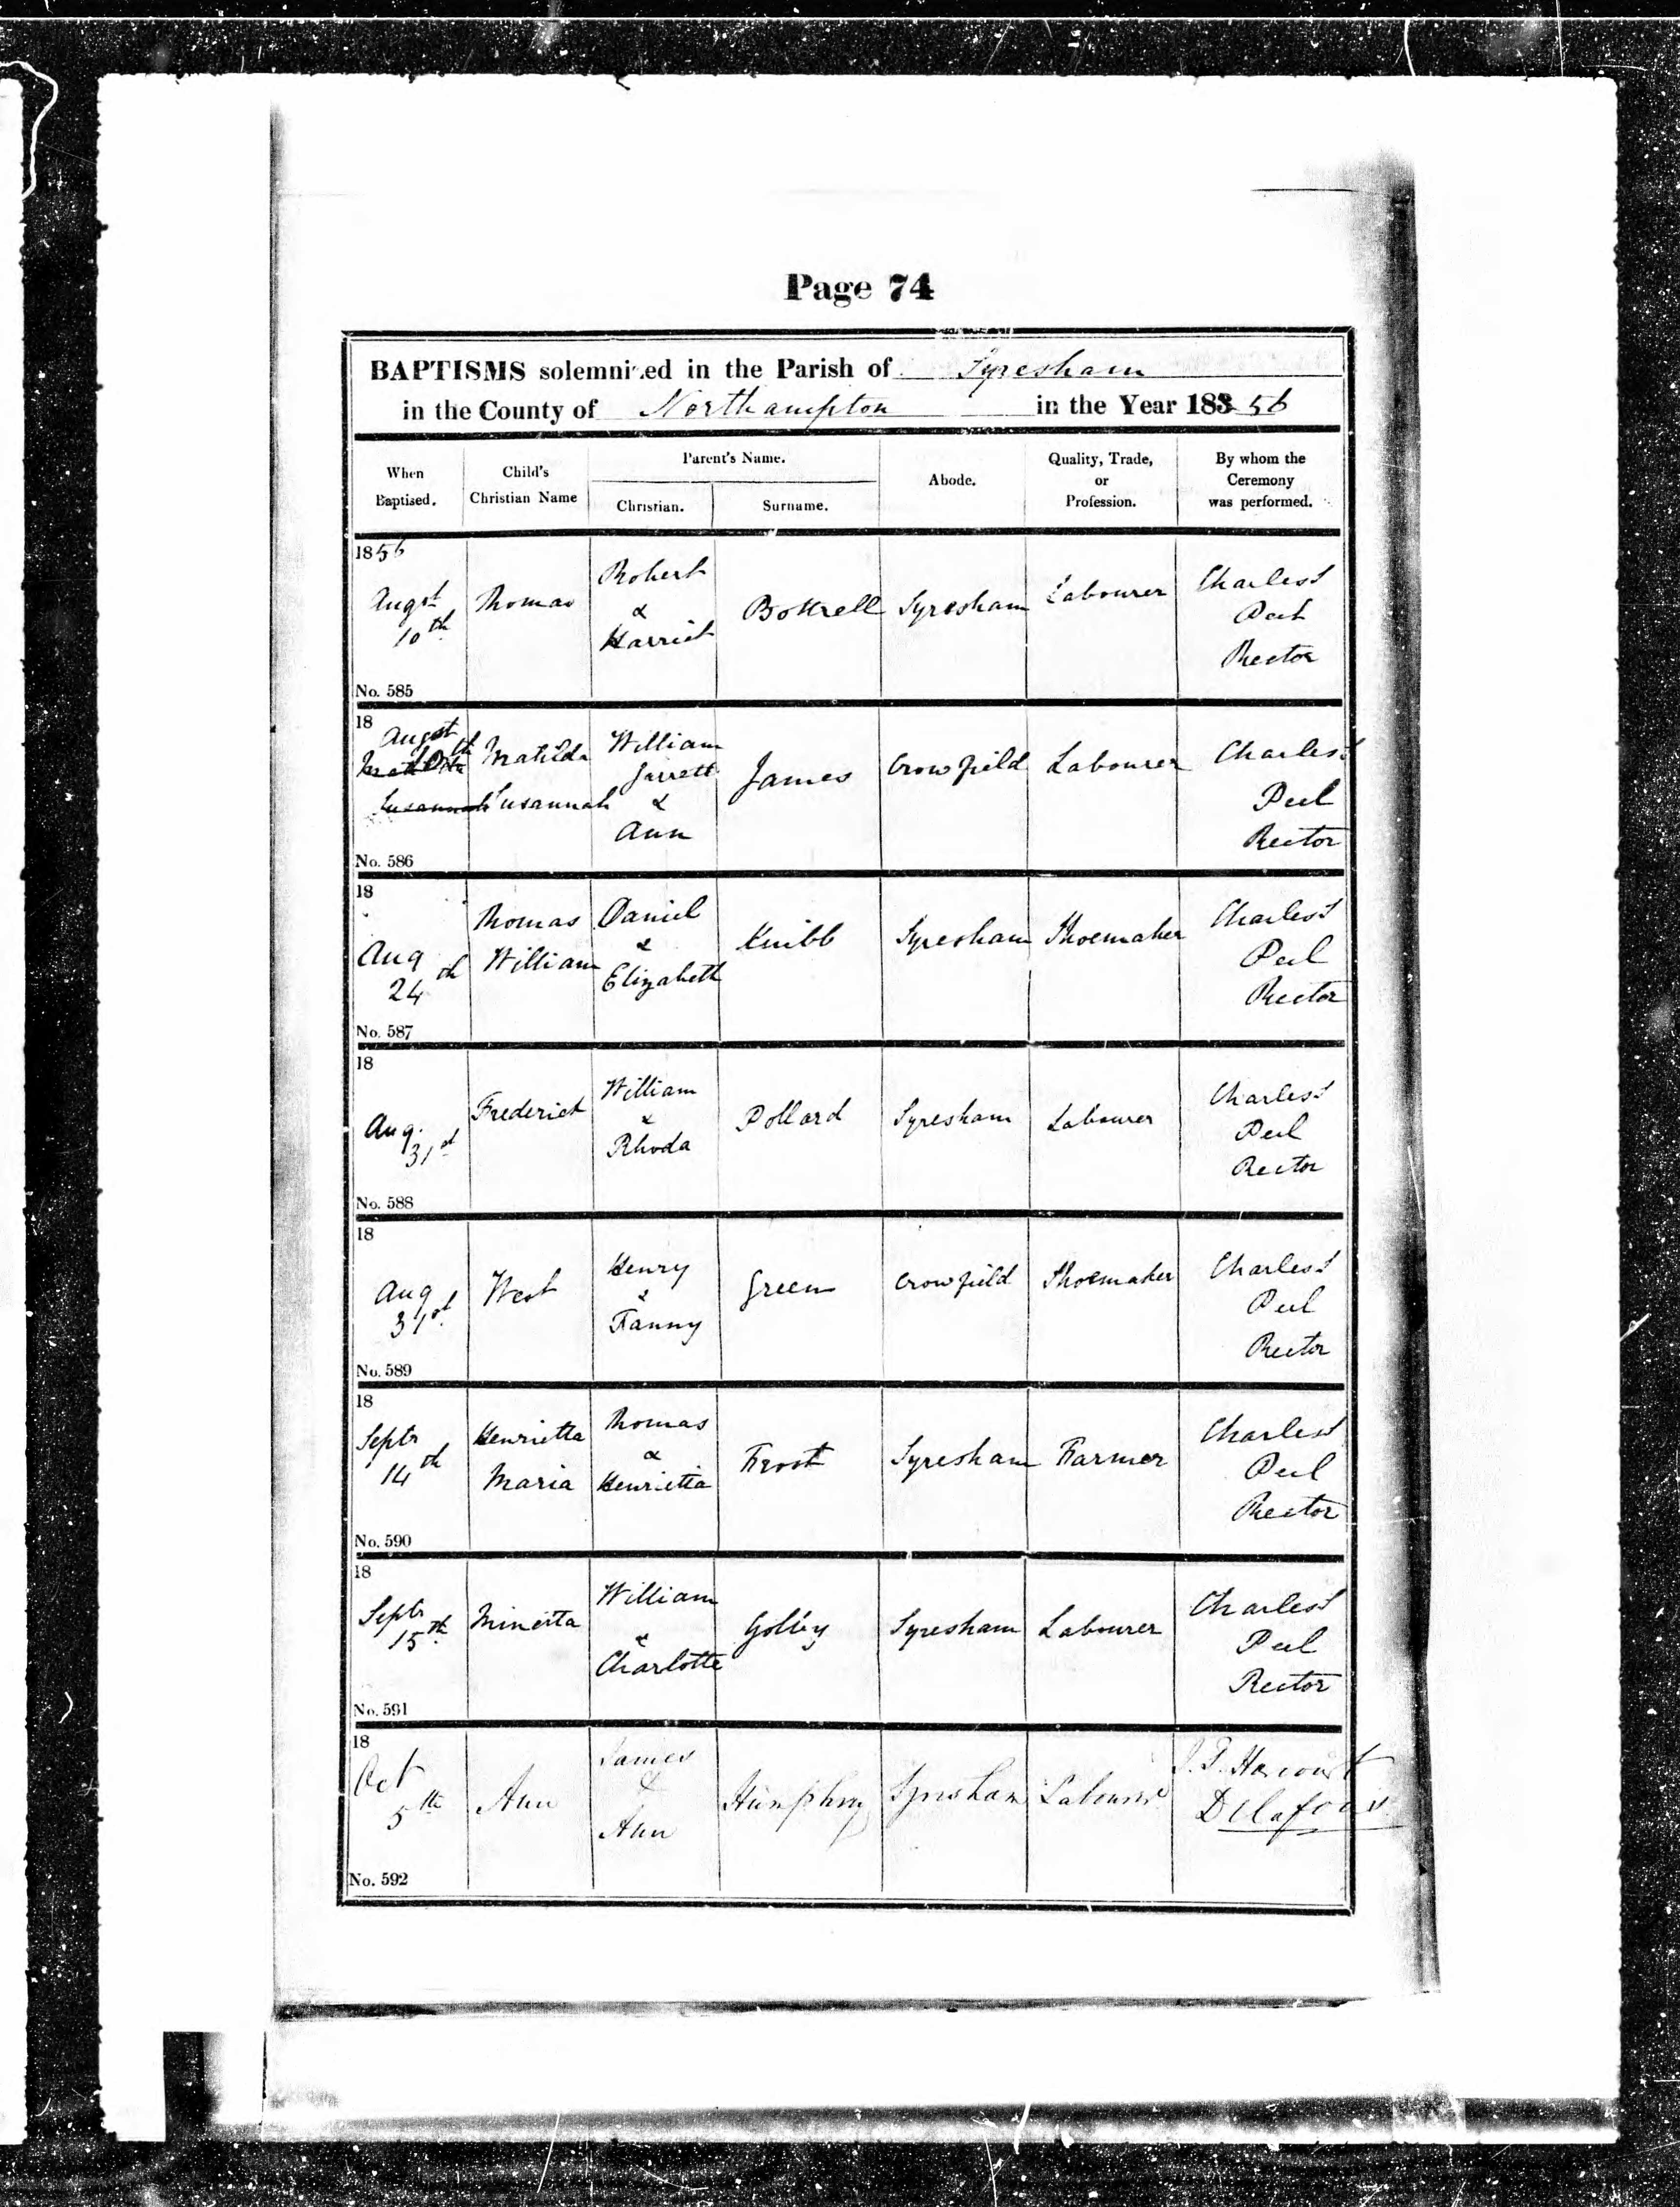 Page 74
BAPTISMS solemnized in the Parish of Syresham
in the County of Northampton in the Year 183 56
When Baptised.
Child's Christian Name
Parent's Name.
Christian.
Surname.
Abode.
Quality, Trade, or Profession.
By whom the Ceremony was performed.
1856
Augst 10th
Thomas
Robert & Harriet
Bottrell
Syresham
Labourer
Charles Peel Rector
No. 585
18
Augst 10th
Matilda Susannah
William Jarrett & Ann
James
Crowfield
Labourer
Charles Peel Rector
No. 586
18
Aug 24th
Thomas William
Daniel & Elizabeth
Knibb
Syresham
Shoemaker
Charles Peel Rector
No. 587
18
Aug. 31st
Frederick
William & Rhoda
Pollard
Syresham
Labourer
Charles Peel Rector
No. 588
18
Aug 31st
West
Henry & Fanny
Green
Crowfield
Shoemaker
Charles Peel Rector
No. 589
18
Septr 14th
Henrietta Maria
Thomas & Henrietta
Frost
Syresham
Farmer
Charles Peel Rector
No. 590
18
Septr 15th
William & Charlotte
Golby
Syresham
Labourer
Charles Peel Rector
No. 591
18
Oct 5th
Ann
James & Ann
Humphrey
Syresham
Labourer
Harcourt
No. 592